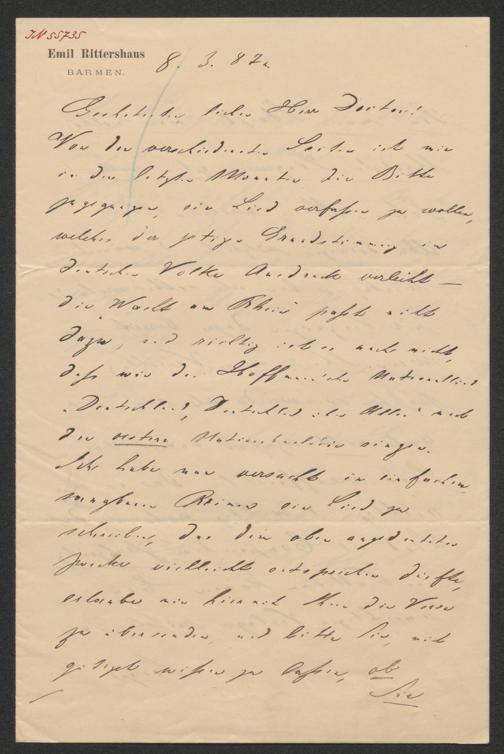 IN 55735
Emil Rittershaus
BARMEN.
8. 3. 87.
Geehrtester lieber Herr Doctor!
Von den verschiedensten Seiten ist mir
in den letzten Monaten die Bitte
zugegangen, ein Lied verfassen zu wollen,
welches der jetzigen Grundstimmung im
deutschen Volke Ausdruck verleiht —
die „Wacht am Rhein" paßt nicht
dazu, und richtig ist es auch nicht,
daß wir das Hoffmann'sche Nationallied
„Deutschland, Deutschland über Alles" nach
der Nationalmelodie singen.
Ich habe nun versucht in einfachen,
sangbaren Reimen ein Lied zu
schreiben, das dem oben angedeuteten
Zwecke vielleicht entsprechen dürfte,
erlaube mir hiermit Ihnen die Verse
zu übersenden und bitte Sie, mich
gütigst wissen zu lassen, ob
Sie